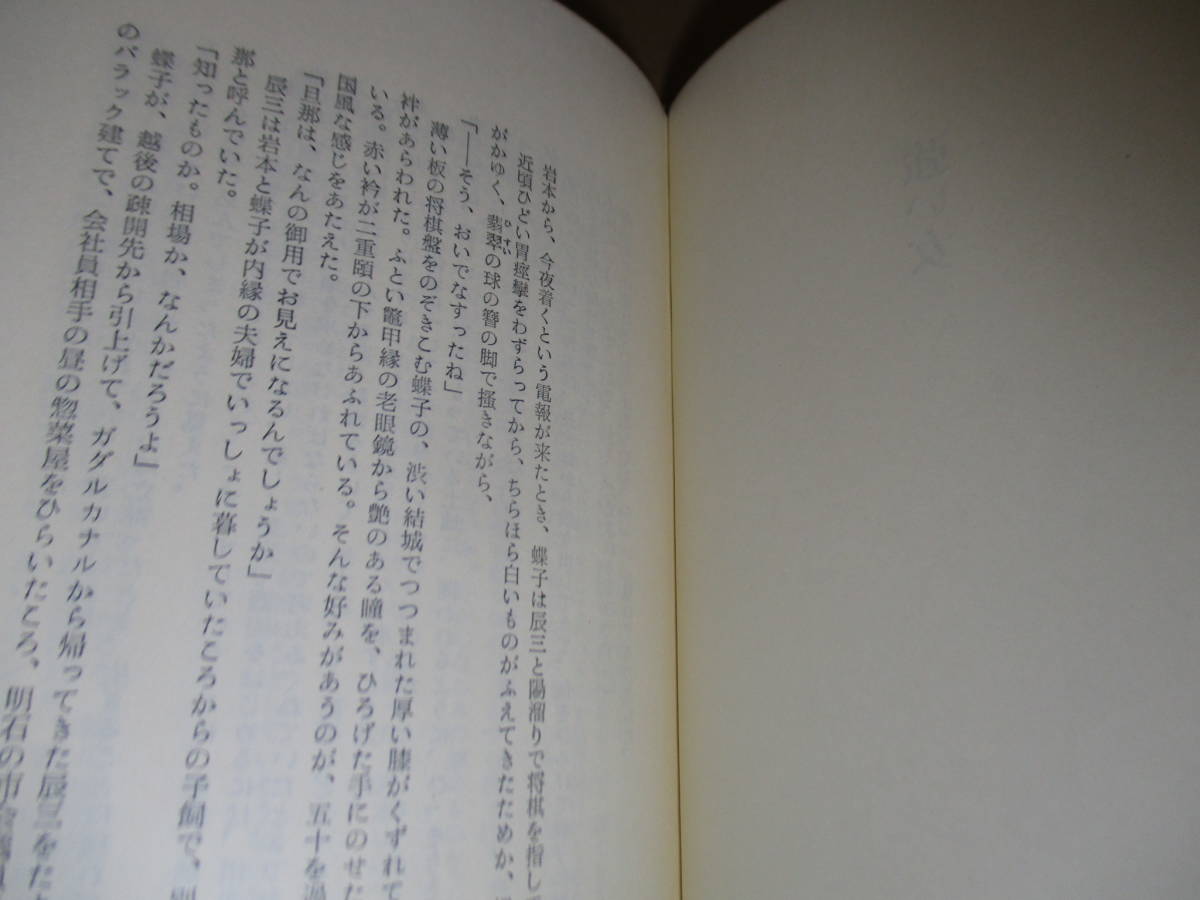 岩本から、今夜着くという電報が来たとき、蝶子は辰三と陽溜りで将棋を指して
近頃ひどい胃痙攣をわずらってから、ちらほら白いものがふえてきたためか、
がかゆく、翡翠の球の簪の脚で掻きながら、
ひすい
「――そう、おいでなすったね」
薄い板の将棋盤をのぞきこむ蝶子の、渋い結城でつつまれた厚い膝がくずれて
袢があらわれた。ふとい鼈甲縁の老眼鏡から艶のある瞳を、ひろげた手にのせた
いる。赤い衿が二重頤の下からあふれている。そんな好みがあうのが、五十を過
国風な感じをあたえた。
「旦那は、なんの御用でお見えになるんでしょうか」
辰三は岩本と蝶子が内縁の夫婦でいっしょに暮していたころからの子飼で、
那と呼んでいた。
「知ったものか。相場か、なんかだろうよ」
蝶子が、越後の疎開先から引上げて、ガダルカナルから帰ってきた辰三をた
のバラック建てで、会社員相手の昼の惣菜屋をひらいたころ、明石の市会議員